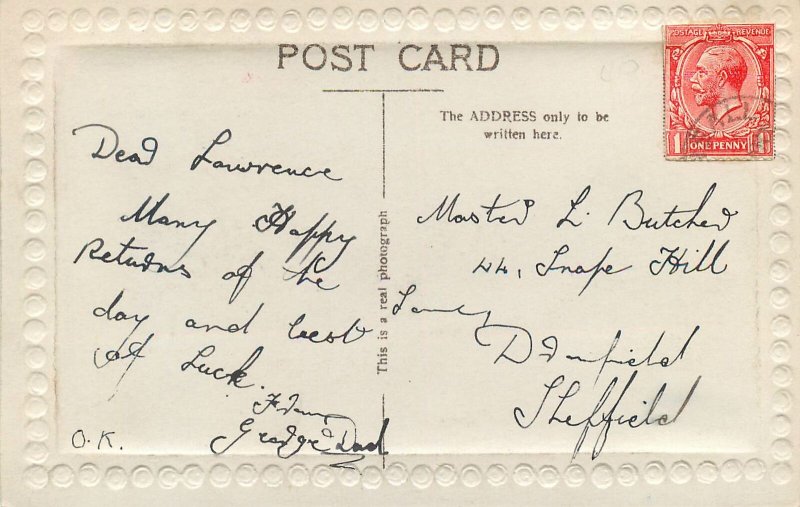 POST CARD
Dear Lawrence
Many Happy
Returns of the
day and best
of Luck.
From
Grandad
O.K.
This is a real photograph
The ADDRESS only to be
written here.
Master L. Butcher
44, Snape Hill
Dronfield
Sheffield
POSTAGE REVENUE
1 ONE PENNY 1